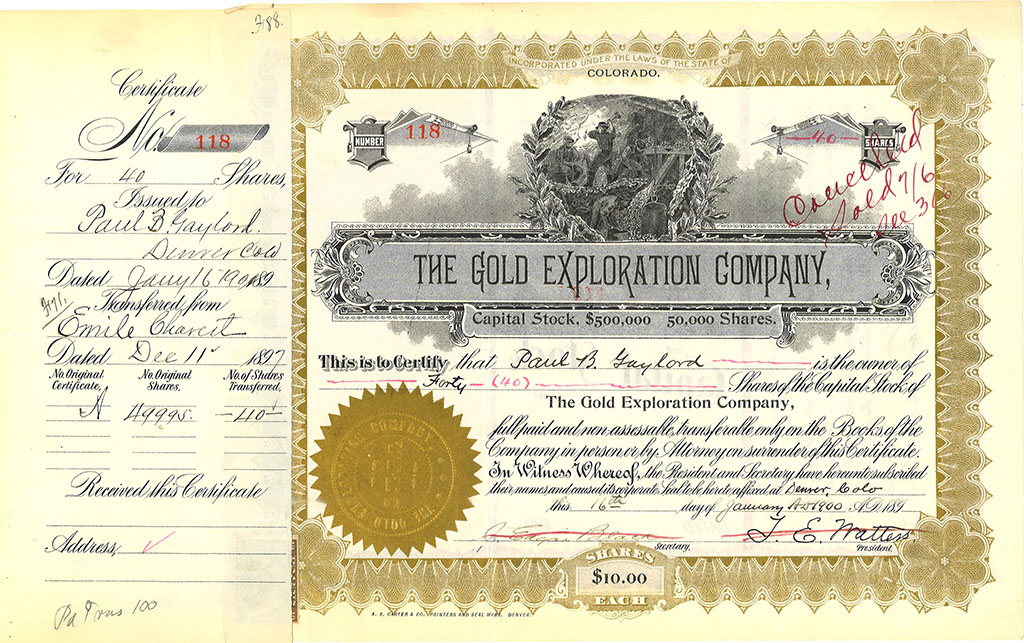 7188.
Certificate
No. 118
For 40 Shares,
Issued to
Paul B Gaylord.
Denver Colo
Dated Jany 16 1900 189
Transferred from
Emile
Dated Dec 11 1897
No. Original Certificate, No. Original Shares, No. of Shares Transferred,
A 49995. 40
Received this Certificate
Address,
100
INCORPORATED UNDER THE LAWS OF THE STATE OF
COLORADO.
NUMBER 118
40 SHARES
Cancelled
Sold 7/6
Dec 31
THE GOLD EXPLORATION COMPANY,
Capital Stock, $500,000 50,000 Shares.
This is to Certify that Paul B Gaylord is the owner of
Forty (40) Shares of the Capital Stock of
The Gold Exploration Company,
full paid and non-assessable, transferable only on the Books of the
Company in person or by Attorney on surrender of this Certificate.
In Witness Whereof, the President and Secretary have hereunto subscribed
their names and caused its corporate Seal to be hereto affixed at Denver, Colo
this 16th day of January AD 1900 A.D. 189
Edgar
Secretary.
T. E. Watters
President.
THE GOLD EXPLORATION COMPANY.
SHARES
$10.00
EACH
A. S. CARTER & CO., PRINTERS AND SEAL MFRS. DENVER.